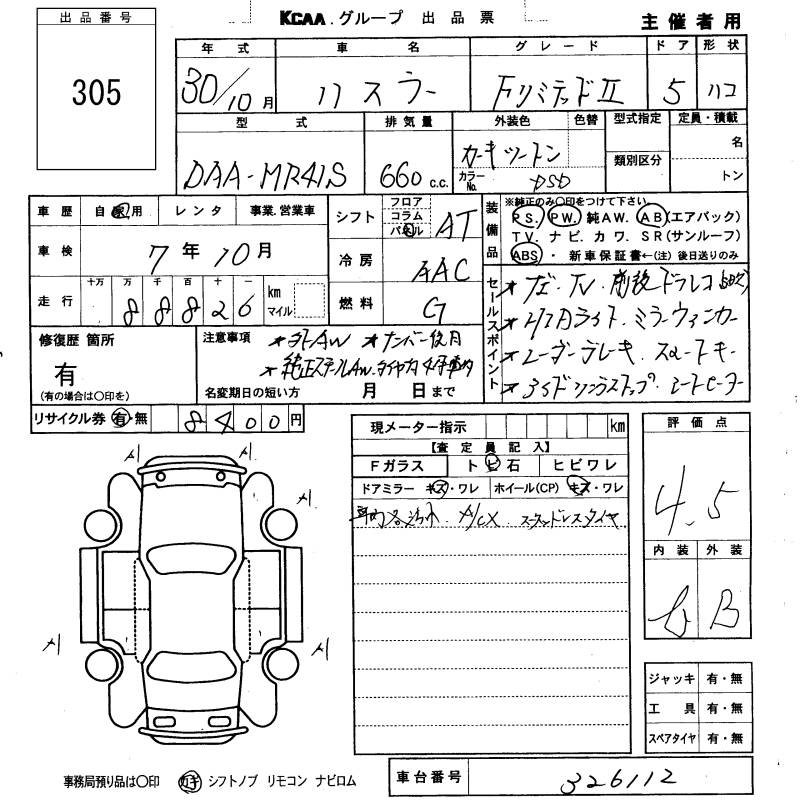 出品番号
KCAA.グループ 出品票
主催者用
305
年式
車名
グレード
ドア
形状
30/10月
ハスラー
FリミテッドⅡ
5
ハコ
型式
排気量
外装色
色替
型式指定
定員・積載
DAA-MR41S
660 c.c.
カーキツートン
カラーNo.
DSD
類別区分
名
トン
車歴
自家用
レンタ
事業.営業車
シフト
フロア
コラム
パネル
AT
装備品
※純正のみ〇印をつけて下さい。
P.S. P.W. 純AW. AB(エアバック)
T.V. ナビ. カワ. SR(サンルーフ)
ABS・新車保証書←(注)後日送りのみ
車検
7年10月
冷房
AAC
走行
十万 万 千 百 十 一
88826
km
マイル
燃料
G
セールスポイント
★ナビ・TV・前後ドラレコ
★HIDライト・ミラーウィンカー
★レーダーブレーキ・スマートキー
★アイドリングストップ・シートヒーター
修復歴 箇所
有
(有の場合は〇印を)
注意事項
★社外AW ★ナンバー後日
★純正スチールAW.タイヤ付4本車内
名変期日の短い方 月 日まで
リサイクル券 有・無
8400円
現メーター指示
km
【査定員記入】
Fガラス
トビ石
ヒビワレ
ドアミラー キズ・ワレ
ホイール(CP) キズ・ワレ
車内 汚れ A/CX スタッドレスタイヤ
評価点
4.5
内装
外装
B
A1
A1
A1
A1
A1
ジャッキ 有・無
工具 有・無
スペアタイヤ 有・無
事務局預り品は〇印 カギ シフトノブ リモコン ナビロム
車台番号
326112